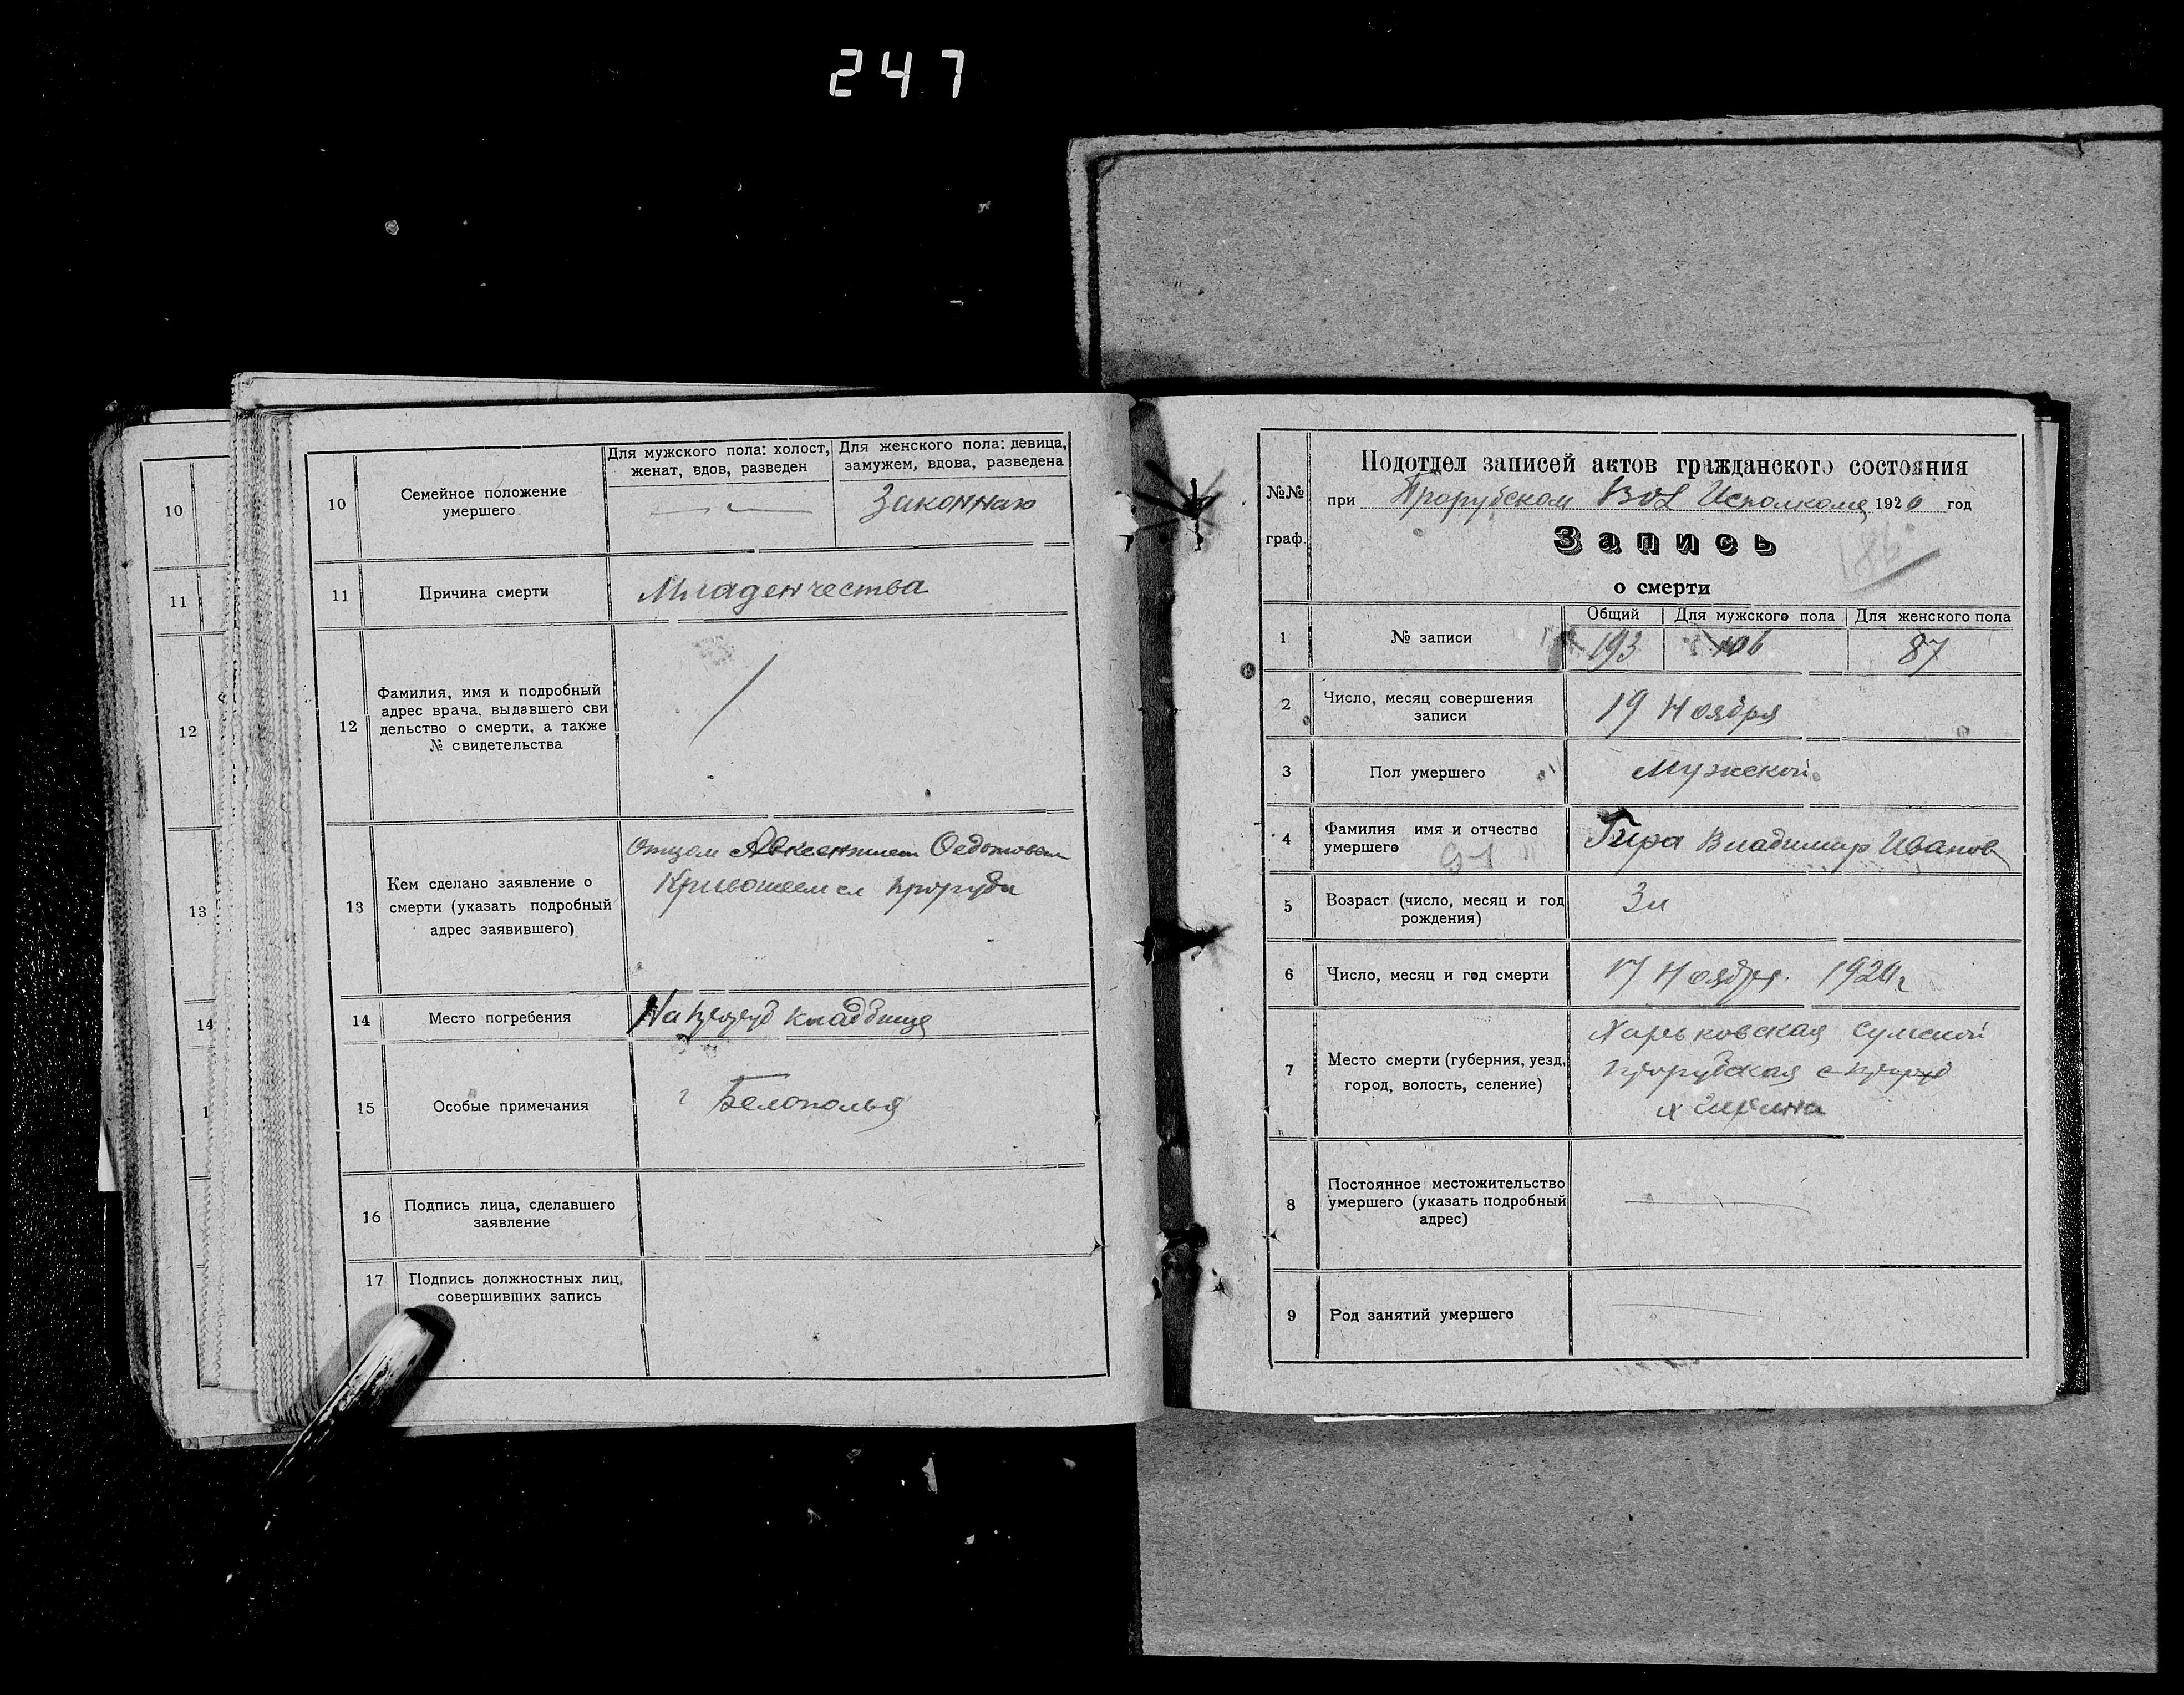 247
10
11
12
13
14
1
10
Семейное положение
умершего
Для мужского пола: холост,
женат, вдов, разведен
Для женского пола: девица,
замужем, вдова, разведена
Законная
11
Причина смерти
Младенчества
12
Фамилия, имя и подробный
адрес врача, выдавшего сви
дельство о смерти, а также
№ свидетельства
13
Кем сделано заявление о
смерти (указать подробный
адрес заявившего)
отцом Авксентием Федотовым
14
Место погребения
На кладбище
15
Особые примечания
г Белополья
16
Подпись лица, сделавшего
заявление
17
Подпись должностных лиц,
совершивших запись
№№
граф.
Подотдел записей актов гражданского состояния
при Прорубском Вол Исполкоме 1920 год
Запись
о смерти
186
1
№ записи
Общий
Для мужского пола
Для женского пола
193
106
87
2
Число, месяц совершения
записи
19 Ноября
3
Пол умершего
Мужской
4
Фамилия имя и отчество
умершего
Гира Владимир Иванов
5
Возраст (число, месяц и год
рождения)
6
Число, месяц и год смерти
17 Ноября 1920 г
7
Место смерти (губерния, уезд,
город, волость, селение)
Харьковская Сумской
Прорубская с Проруб
8
Постоянное местожительство
умершего (указать подробный
адрес)
9
Род занятий умершего